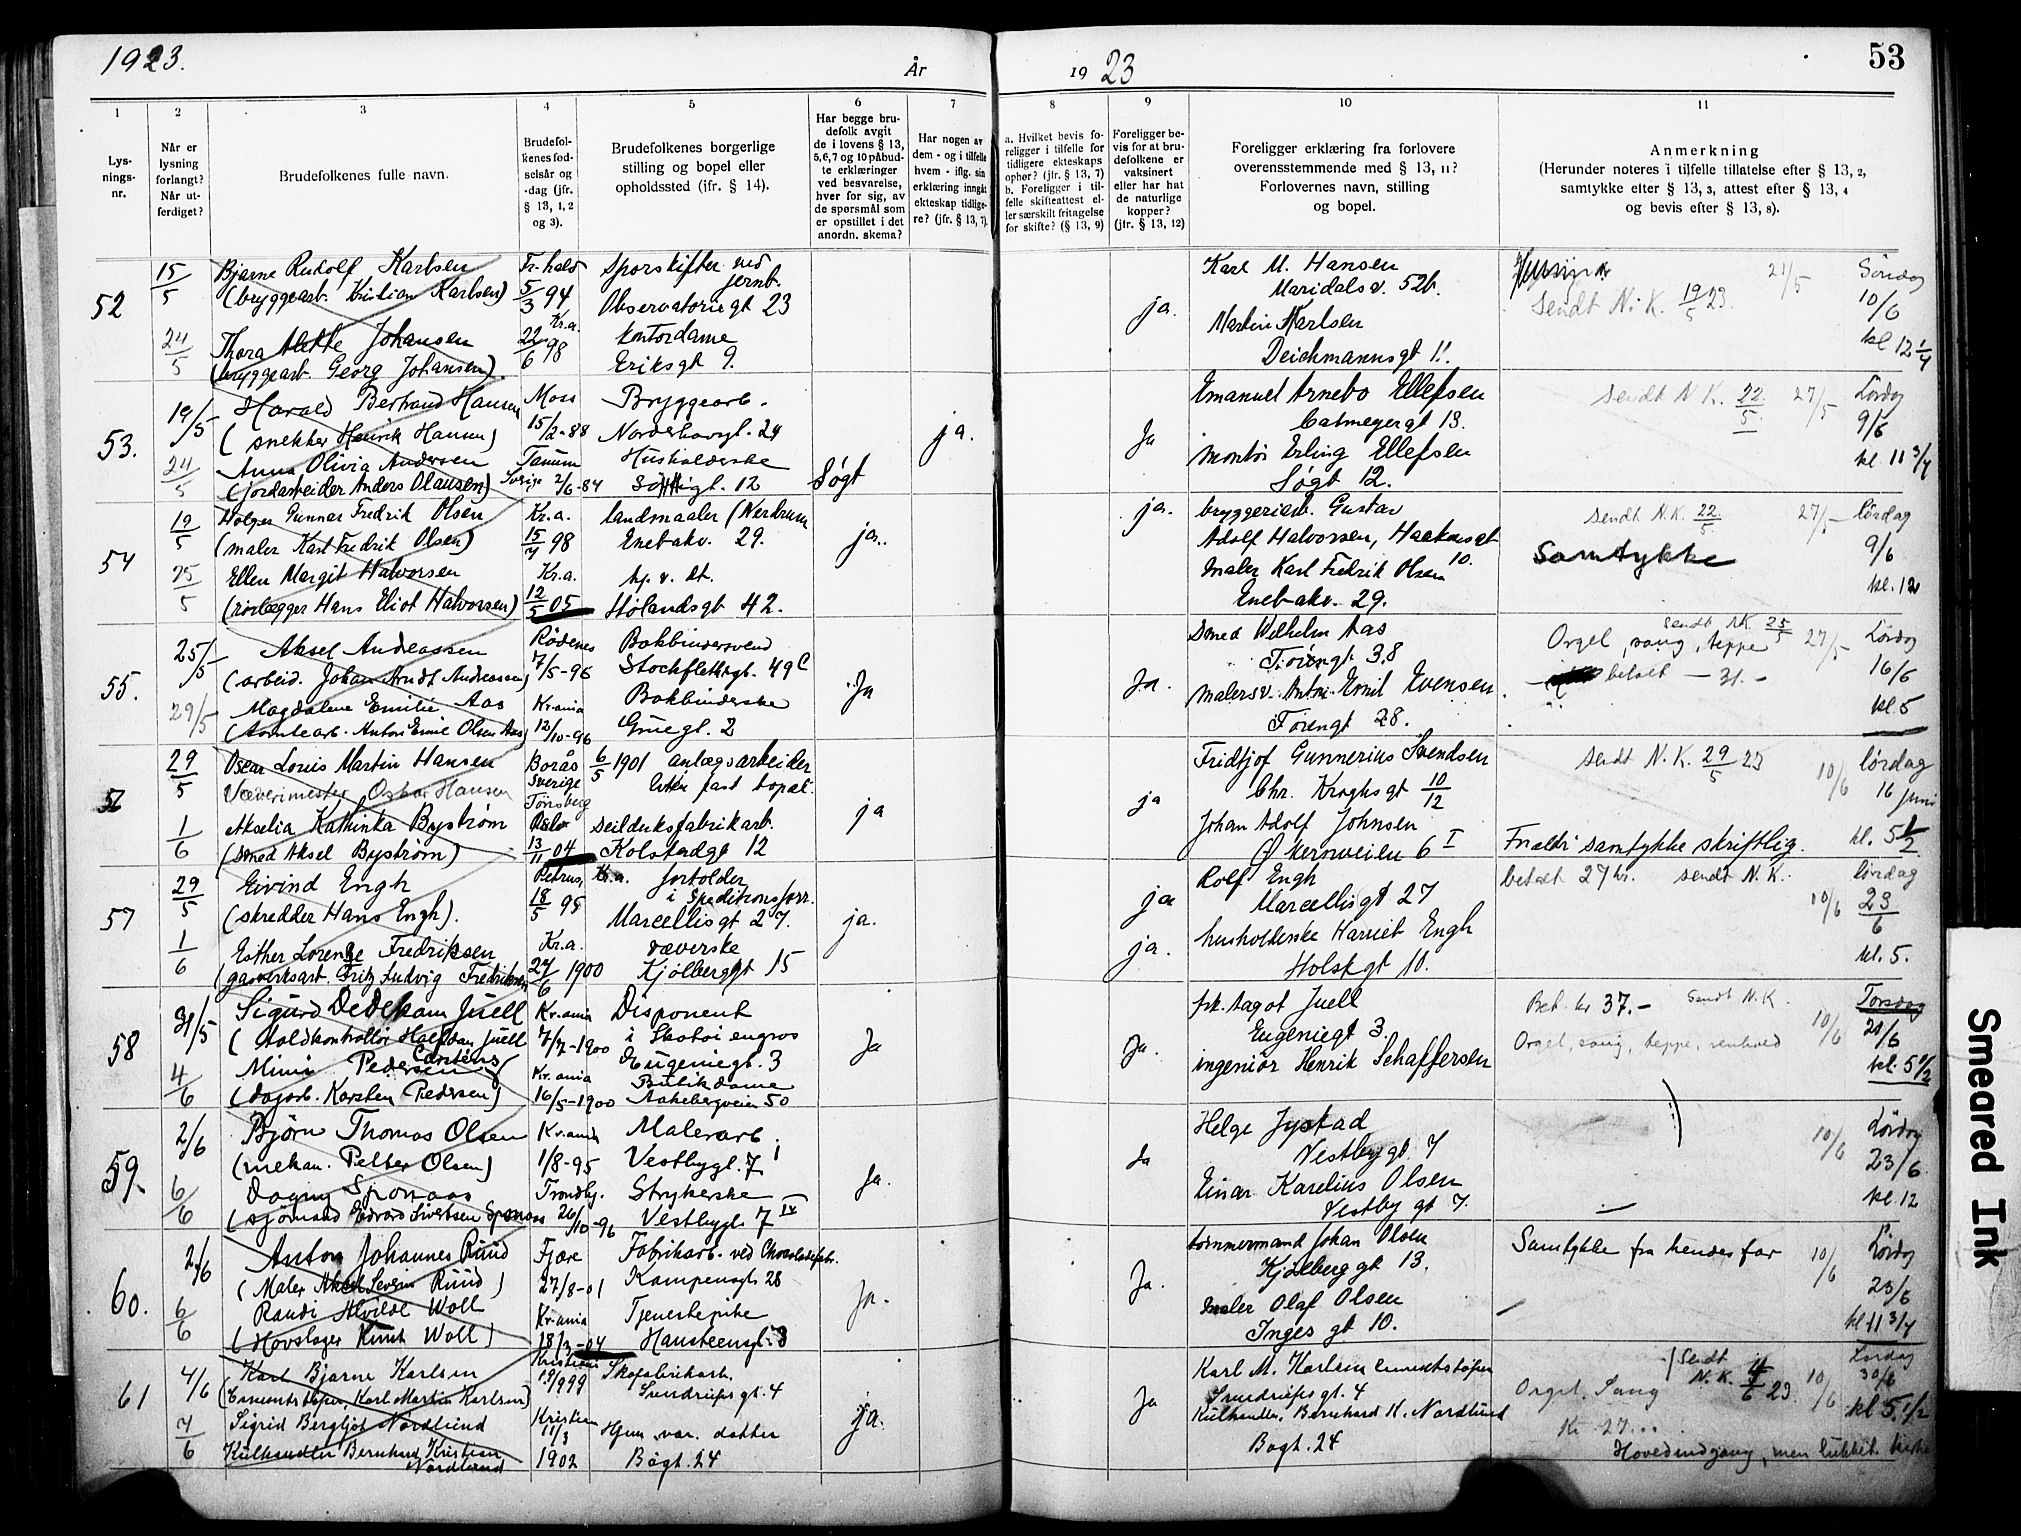 1923.
År
19 23
53
1 2 3 4 5 6 7 8 9 10 11
Lys-
nings-
nr.
Når er
lysning
forlangt?
Når ut-
ferdiget?
Brudefolkenes fulle navn.
Brudefol-
kenes fød-
selsår og
-dag (jfr.
§ 13, 1, 2
og 3).
Brudefolkenes borgerlige
stilling og bopel eller
opholdssted (ifr. § 14).
Har begge bru-
defolk avgit
de i lovens § 13,
5,6,7 og 10 påbud-
te erklæringer
ved besvarelse,
hver for sig, av
de spørsmål som
er opstillet i det
anordn. skema?
Har nogen av
dem - og i tilfelle
hvem - iflg. sin
erklæring inngåt
ekteskap tidlige-
re? (jfr. § 13, 7).
a. Hvilket bevis fo-
religger i tilfelle for
tidligere ekteskaps
ophør? (jfr. § 13, 7)
b. Foreligger i til-
felle skifteattest el-
ler særskilt fritagelse
for skifte? (§ 13, 9)
Foreligger be-
vis for at bru-
defolkene er
vaksinert
eller har hat
de naturlige
kopper?
(jfr. § 13, 12)
Foreligger erklæring fra forlovere
overensstemmende med § 13, 11?
Forlovernes navn, stilling
og bopel.
Anmerkning
(Herunder noteres i tilfelle tillatelse efter § 13, 2,
samtykke efter § 13, 3, attest efter § 13, 4
og bevis efter § 13, 8).
52
15/5
Bjarne Rudolf Karlsen
(bryggearb. Kristian Karlsen)
Fr.hald
5/3 94
Sporskifter ved
jernb.
Observatoriegt 23
24/5
Thora Alette Johansen
(bryggearb. Georg Johansen)
Kr.a.
22/6 98
Kontordame
Eriksgt 9.
ja.
Karl M. Hansen
Maridalsv. 52b.
Martin Karlsen
Deichmannsgt 11.
Sendt N.K. 19/5 23.
21/5
Søndag
10/6
kl 12 1/4
53.
19/5
Harald Bertrand Hansen
(snekker Henrik Hansen)
Moss
15/2-88
Bryggearb.
Norderhovgt. 24
24/5
Anna Olivia Andersen
(jordarbeider Anders Olausen)
Tanum
Sverige 2/6-84
Husholderske
12
Søgt
ja.
Ja
Emanuel Arnebo Ellefsen
Catmeyergt 13.
Montør Erling Ellefsen
Søgt 12.
Sendt N.K. 22/5
27/5
Lørdag
9/6
kl. 11 3/4
54
19/5
Holger Gunnar Fredrik Olsen
(maler Karl Fredrik Olsen)
Kr.a.
15/7 98
landmaaler (Nerdrum
Enebakv. 29.
25/5
Ellen Margit Halvorsen
(rørlægger Hans Eliot Halvorsen)
Kr.a.
12/5 05
hj. v. dt.
Hølandsgt 42.
ja.
ja.
bryggeriarb. Gustav
Adolf Halvorsen, Haakonsgt
10.
Maler Karl Fredrik Olsen
Enebakv. 29.
Sendt N.K. 22/5
27/5
Samtykke
lørdag
9/6
kl. 12
55.
25/5
Aksel Andreassen
(arbeid. Johan Arndt Andreassen)
Rødenes
7/5-96
Bokbindersvend
Stockflethsgt. 49 C
29/5
Magdalene Emilie Aas
Kr.ania
12/10-96
Bokbinderske
Gruegt. 2
Ja
Ja.
Smed Wilhelm Aas
Tøiengt. 38
Malersv. Anton Emil Evensen.
Tøiengt 28.
Sendt NK. 25/5
Orgel, sang, teppe
betalt — 31.-
27/5
Lørdag
16/6
kl. 5
29/5
Oscar Louis Martin Hansen
Væverimester Oskar Hansen
Borås
Sverige
6/5 1901 anlægsarbeider
uten fast bopæl.
1/6
Akselia Kathinka Bystrøm
(smed Aksel Bystrøm)
Tønsberg
13/11 04
Seilduksfabrikarb.
Kolstadgt 12
ja
ja
Fridtjof Gunnerius Svendsen
Chr. Kroghsgt 10/12
Johan Adolf Johnsen
Økernveien 6 I
Sendt N.K. 29/5 23
10/6
Forældr. samtykke skriftlig.
lørdag
16 juni
kl. 5 1/2
57
29/5
Eivind Engh
(skredder Hans Engh).
Petrus, Kr.a.
18/5 95
fortolder
i Speditionsforr.
Marcellisgt 27.
1/6
Esther Lorense Fredriksen
(gasverksarb. Fritz Ludvig Fredriksen
Kr.a.
24/6 1900
væverske
Kjølberggt 15
ja.
ja
ja.
Rolf Engh
Marcellisgt 27
husholderske Harriet Engh
Holstgt 10.
betalt 27 kr. Sendt N.K.
10/6
lørdag
23/6
kl. 5.
58
31/5
Sigurd Dedekam Juell
(Toldkontrollør Halfdan Juell
Kr.ania
7/7-1900
Disponent
i Skotøi engros
Eugeniegt. 3
4/6
Mimi Pedersen
(dagarb. Karsten Pedersen)
Kr.ania
16/5-1900
Butikdame
Aakebergveien 50
Ja
Ja.
frk. Aagot Juell
Eugeniegt 3.
ingeniør Henrik Schaffersen
Bet. kr 37.- Sendt N.K.
Orgel, sang, teppe, renhold
10/6
Torsdag
21/6
kl. 5 1/2
59.
2/6
Bjørn Thomas Olsen
(mekan. Petter Olsen)
Kr.ania
1/8-95
Malerarb.
Vestbygt. 7 I
6/6
Dagny Sponaas
(sjømand Edvard Sivertsen Sponaas
Trondhj.
26/10-96
Strykerske
Vestbygt. 7 IV
Ja.
Ja
Helge Jystad
Vestbygt. 7
Einar Karelius Olsen
Vestby gt 7.
10/6
Lørdag
23/6
kl. 12
60.
2/6
Anton Johannes Ruud
(Maler Aksel Severin Ruud)
Fjære
27/8-01
Fabrikarb. ved Chocoladefabr.
Kampensgt. 28
6/6
Randi Alvilde Woll
(Hovslager Knut Woll)
Kr.ania
18/3-04
Tjenestepike
Hansteensgt. 3
Ja.
Ja.
tømmermand Johan Olsen
Kjølberggt 13.
Maler Olaf Olsen
Inges gt 10.
Samtykke fra hendes far
10/6
Lørdag
23/6
kl 11 3/4
61
4/6
Karl Bjarne Karlsen
(Cementstøper, Karl Martin Karlsen)
Kristiania
Skofabrikarb.
Sundrupsgt. 4
7/6
Sigrid Bergljot Nordlund
Kulhandler Bernhard Kristian
Nordlund
Kristian
11/3
1902
Hjem. vær. datter
Bøgt. 24
ja.
Ja
Karl M. Karlsen cementstøper
Sundrupsgt. 4
Kulhandler, Bernhard K. Nordlund
Bøgt. 24
Sendt
N.K. 4/6 23
10/6
Orgel. Sang
Kr. 27...
Hovedindgang, men lukket kirke
Lørdag
30/6
kl 5 1/2
Smeared Ink